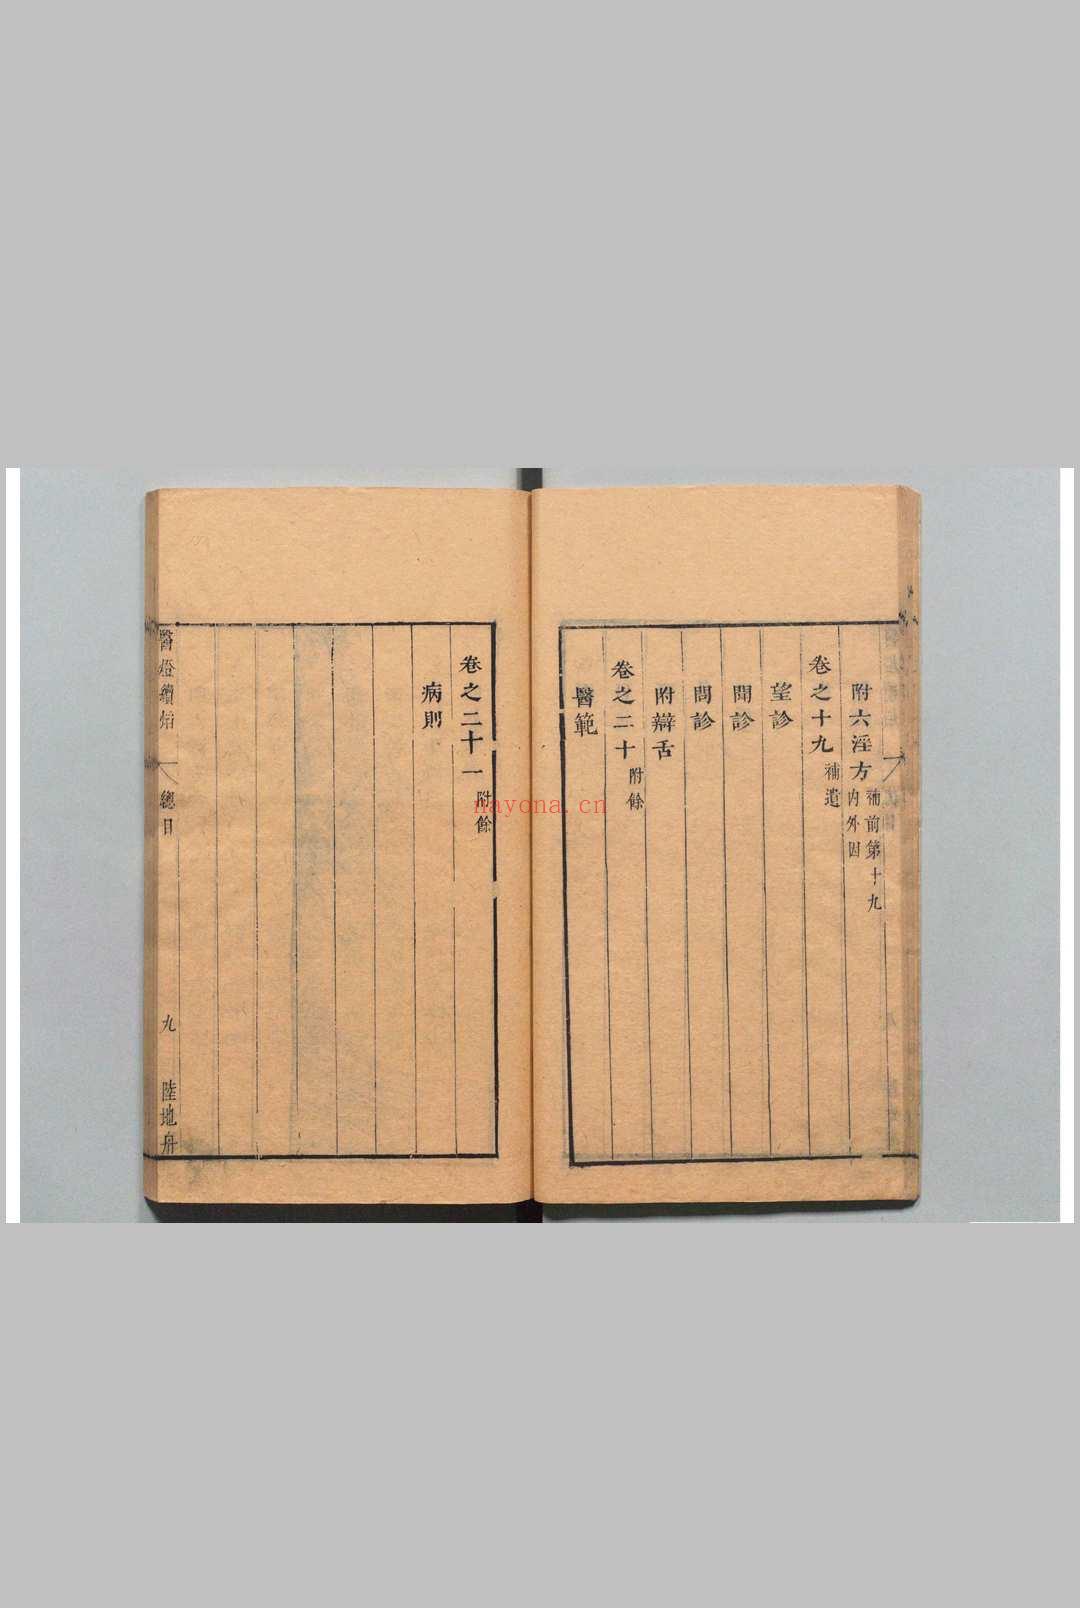 附六淫方補前第十九內外因
卷之十九補遺
望診
聞診
問診
附辯舌
卷之二十附餘
醫範
卷之二十一附餘
病則
醫燈續焰
總目
九
陸地舟
nayona.cn